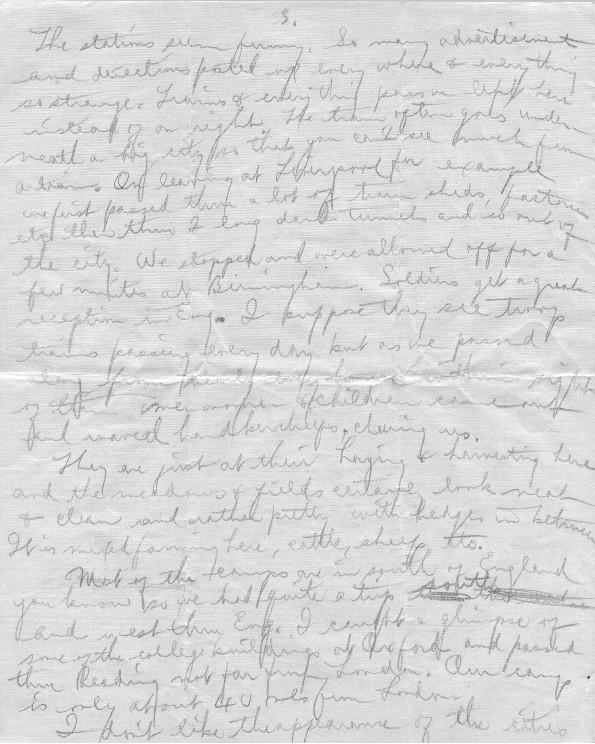 3.
The stations seem funny. So many advertisement
and directions posted up every where & everything
so strange. Trains & everything pass on left here
instead of on right. The train often goes under-
neath a big city so that you can't see much from
a train. On leaving at Liverpool for example
we first passed thru a lot of train sheds, factories
etc then thru 2 long dark tunnels and so out of
the city. We stopped and were allowed off for a
few minutes at Birmingham. Soldiers get a great
reception in Eng. I suppose they see troop
trains passing every day but as we passed
along from nearly every house within sight
of the men women & children came out
and waved handkerchiefs, cheering us.
They are just at their haying & harvesting here
and the meadows & fields certainly look neat
& clean and rather pretty with hedges in between
It is mixed farming here, cattle, sheep etc.
Most of the camps are in south of England
you know so we had quite a trip
and west thru Eng. I caught a glimpse of
some of the college buildings at Oxford and passed
thru Reading not far from London. Our camp
is only about 40 mls from London
I don't like the apparance of the cities